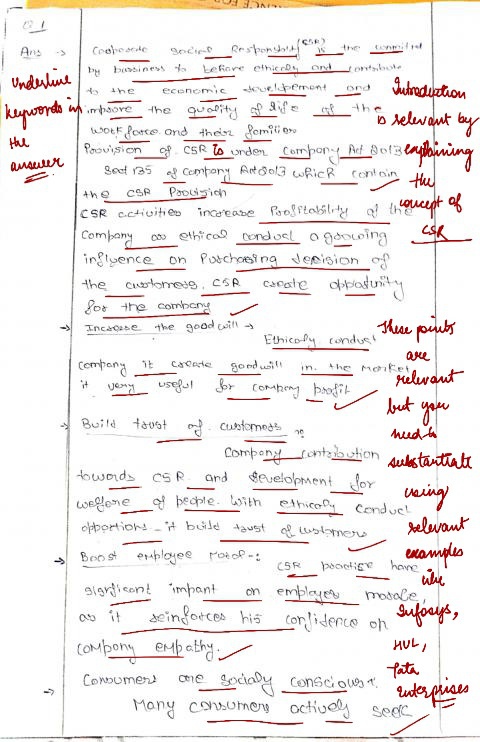 Q 1
Ans → Corporate social Responsibility (CSR) is the commited
by bussiness to behave ethicaly and contribute
to the economic development and
improve the quality of life of the
workforce and their families
Provision of CSR is under Company Act 2013
Sect 135 of Company Act 2013 which contain
the CSR Provision
CSR activities increase Profitability of the
Company as ethical conduct a growing
influence on Purchasing decision of
the customers. CSR create opportunity
for the company
→ Increase the goodwill →
Ethicaly conduct
company it create goodwill in the market
it very useful for company profit
→ Build trust of customers :-
Company contribution
towards CSR and development for
welfare of people. With ethicaly conduct
it build trust of customers
→ Boost employee Moral -:
CSR practise have
significant impant on employees morale,
as it reinforces his confidence on
company empathy.
→ Consumers are socialy conscious :-
Many consumers actively seek
Underline
keywords in
the
answer
Introduction
is relevant by
explaining
the
concept of
CSR
These points
are
relevant
but you
need to
substantiate
using
relevant
examples
like
Infosys,
HUL,
Tata
Enterprises